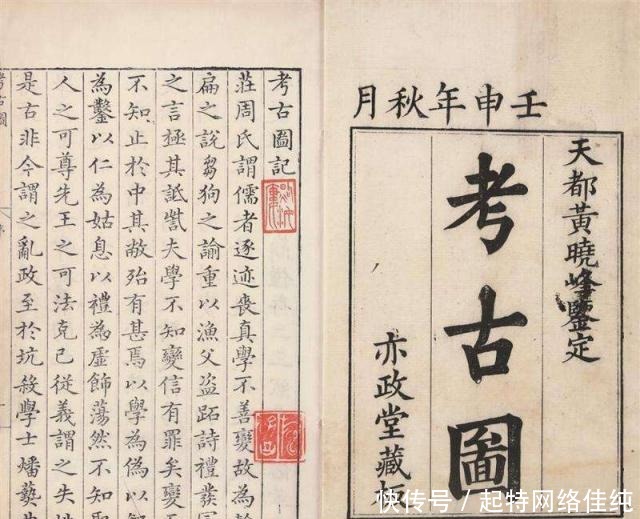 壬申年秋月
天都黃曉峰鑒定
考古圖
亦政堂藏
考古圖記
莊周氏謂儒者逐迹喪真學不善變故為
扁之說芻狗之諭重以漁父盜跖詩禮發
之言極其詆訾夫學不知變信有罪矣變
不知止於中其敝殆有甚焉以學為偽以知
為鑿以仁為姑息以禮為虛飾蕩然不知
人之可尊先王之可法克己從義謂之失
是古非今謂之亂政至於坑殺學士燔藝
考古圖
快传号 / 起特网络佳纯